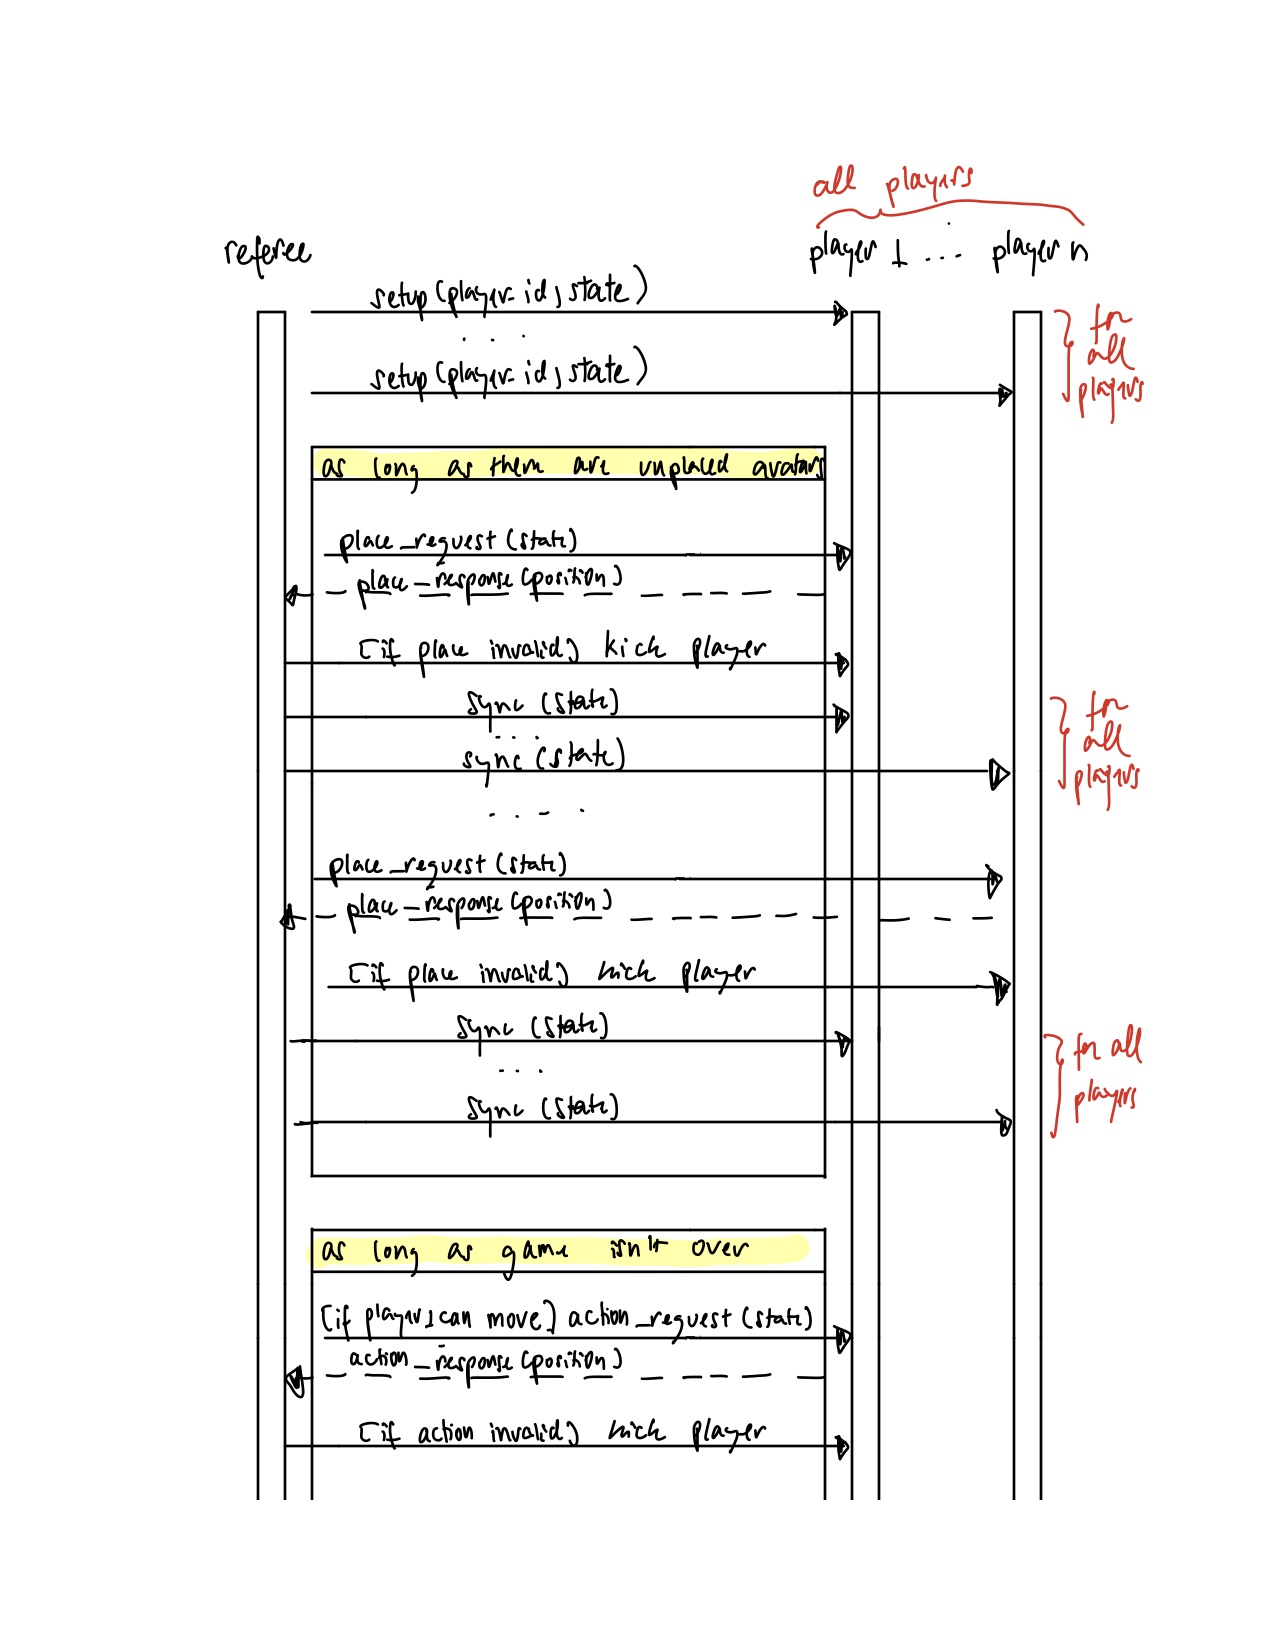 all players
referee player 1 ... player n
setup (player-id, state)
. . .
for
all
players
setup (player-id, state)
as long as there are unplaced avatars
place_request (state)
place_response (position)
[if place invalid] kick player
sync (state)
. . .
for
all
players
sync (state)
. . - .
place_request (state)
place_response (position)
[if place invalid] kick player
sync (state)
. . .
for all
players
sync (state)
as long as game isn't over
[if player 1 can move] action_request (state)
action_response (position)
[if action invalid] kick player